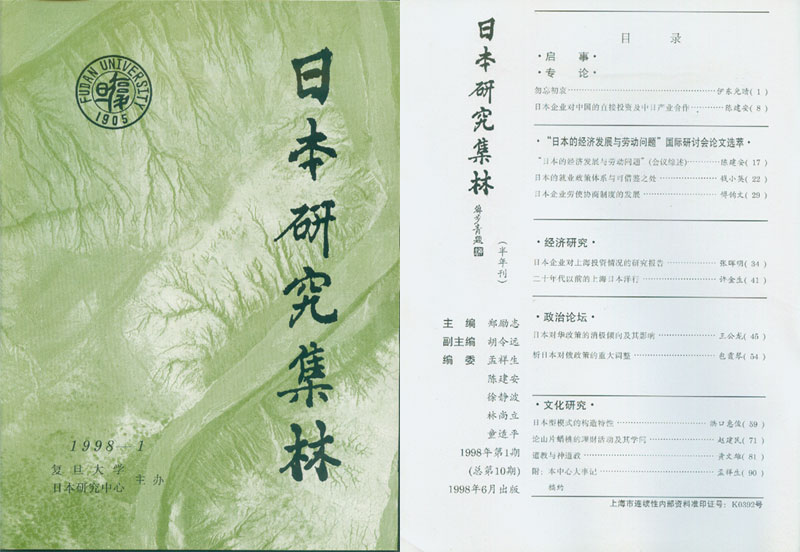 FUDAN UNIVERSITY
1905
日本研究集林
1998—1
复旦大学
日本研究中心
主办
日本研究集林
(半年刊)
主编 郑励志
副主编 胡令远
编委 孟祥生
陈建安
徐静波
林尚立
童适平
1998年第1期
(总第10期)
1998年6月出版
目录
·启事·
·专论·
勿忘初衷 伊东光晴(1)
日本企业对中国的直接投资及中日产业合作 陈建安(8)
·“日本的经济发展与劳动问题”国际研讨会论文选萃·
“日本的经济发展与劳动问题”(会议综述) 陈建安(17)
日本的就业政策体系与可借鉴之处 钱小英(22)
日本企业劳使协商制度的发展 傅钧文(29)
·经济研究·
日本企业对上海投资情况的研究报告 张晖明(34)
二十年代以前的上海日本洋行 许金生(41)
·政治论坛·
日本对华政策的消极倾向及其影响 王公龙(45)
析日本对俄政策的重大调整 包霞琴(54)
·文化研究·
日本型模式的构造特性 浜口惠俊(59)
论山片蟠桃的理财活动及其学问 赵建民(71)
道教与神道教 黄文雄(81)
附:本中心大事记 孟祥生(90)
稿约
上海市连续性内部资料准印证号:K0392号